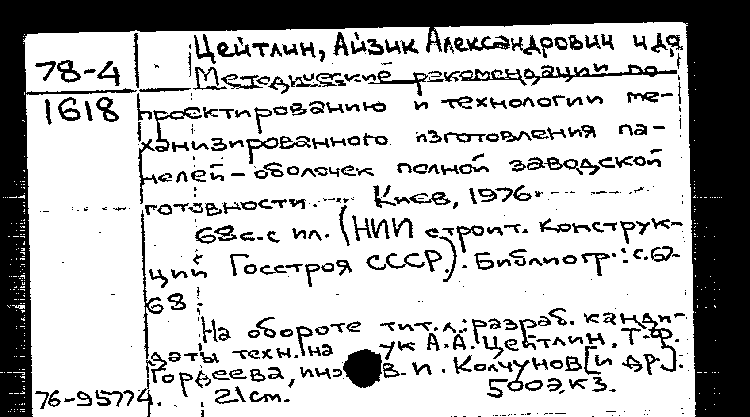 Цейтлин, Айзик Александрович и др
78-4 Методические рекомендации по
1618 проектированию и технологии ме-
ханизированного изготовления па-
нелей-оболочек полной заводской
готовности. Киев, 1976
68 с. с ил. (НИИ строит. конструк-
ций Госстроя СССР). Библиогр.: с. 67-
68.
На обороте тит. л.: разраб. канди-
даты техн. на ук А.А. Цейтлин, Т.Ф.
Гордеева, инж В.И. Колчунов [и др.].
76-95774. 21 cm. 500 экз.